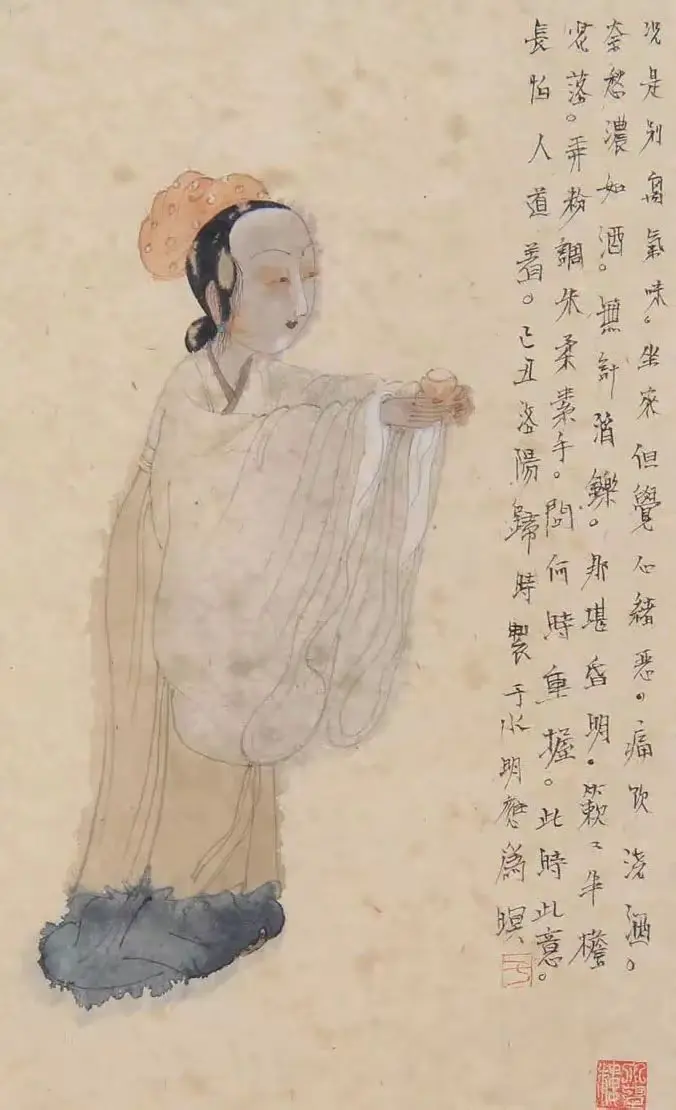 况是别离氣味。坐來但覺心緒惡。痛飲澆酒。
奈愁濃如酒。無計消鑠。那堪昏明。簌〻半檐
花落。弄粉調朱柔素手。問何時重握。此時此意。
長怕人道着。己丑洛陽歸時製于水明